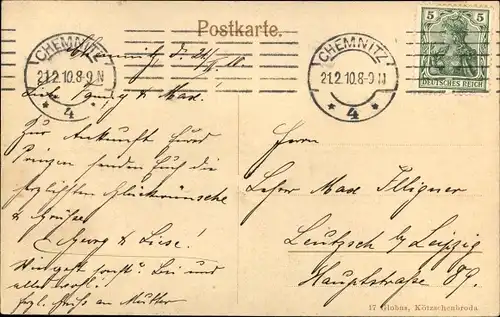 Postkarte.
CHEMNITZ
21.2.10.8-9 N
* 4 *
CHEMNITZ
21.2.10.8-9 N
* 4 *
5 5
DEUTSCHES REICH
Chemnitz, d.
Zur Ankunft Eures
Prinzen senden Euch die
herzlichsten Glückwünsche
& Grüße
Georg & Liese!
Bei uns
alles wohl!
Herzl. Gruß an Mutter
Herrn
Lehrer Max Illigner
Leutzsch b/ Leipzig
Hauptstraße 89.
17 Globus, Kötzschenbroda